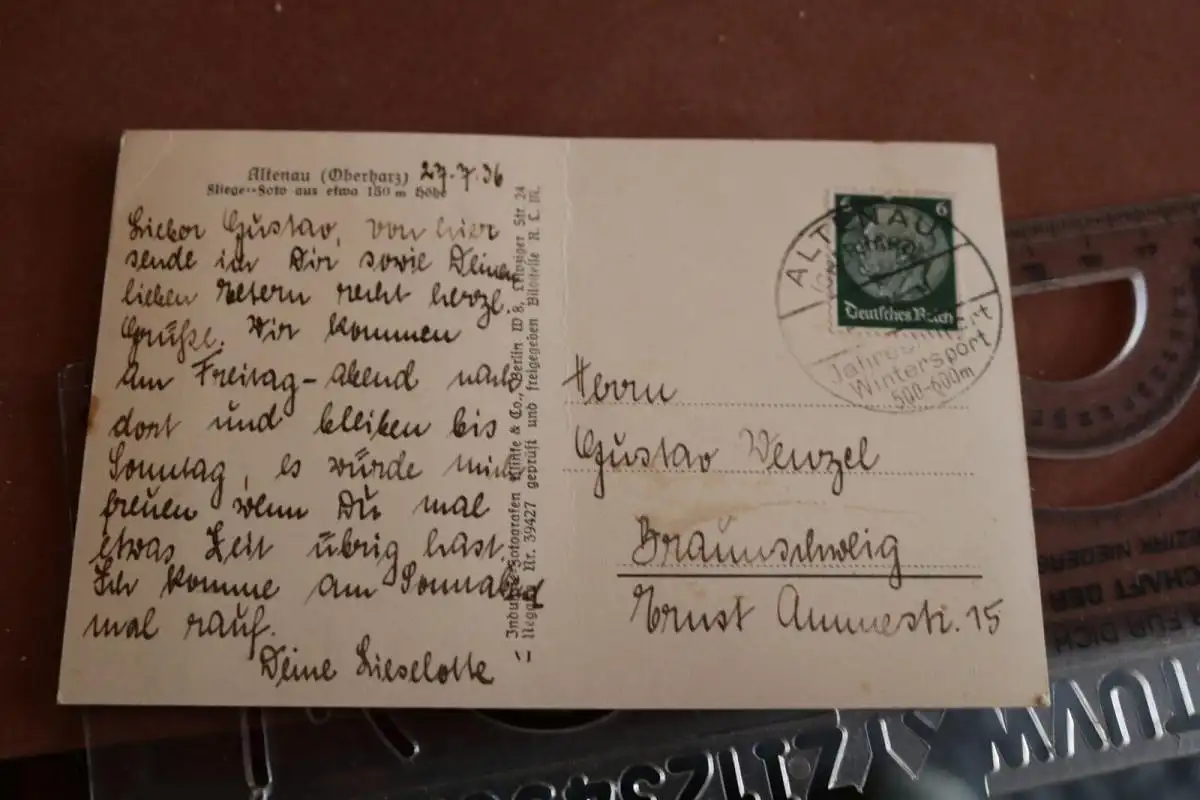 Altenau (Oberharz) 27.7.36
Flieger-Foto aus etwa 150 m Höhe
Lieber Gustav, von hier
sende ich Dir sowie Deinen
lieben Eltern recht herzl.
Grüße. Wir kommen
am Freitag-abend nach
dort und bleiben bis
Sonntag, es würde mich
freuen wenn Du mal
etwas Zeit übrig hast.
Ich komme am Sonnabend
mal rauf.
Deine Lieselotte
Industrie-Fotografen Klinke & Co., Berlin W 8, Leipziger Str. 24
Negativ Nr. 39427 geprüft und freigegeben Bildstelle R. L. M.
6 6
Deutsches Reich
ALTENAU
Jahres
Wintersport
500-600m
Herrn
Gustav Wenzel
Braunschweig
Ernst Ammestr. 15
BEZIRK NIEDERS
SCHAFT DER
FÜR DICH
TUVW